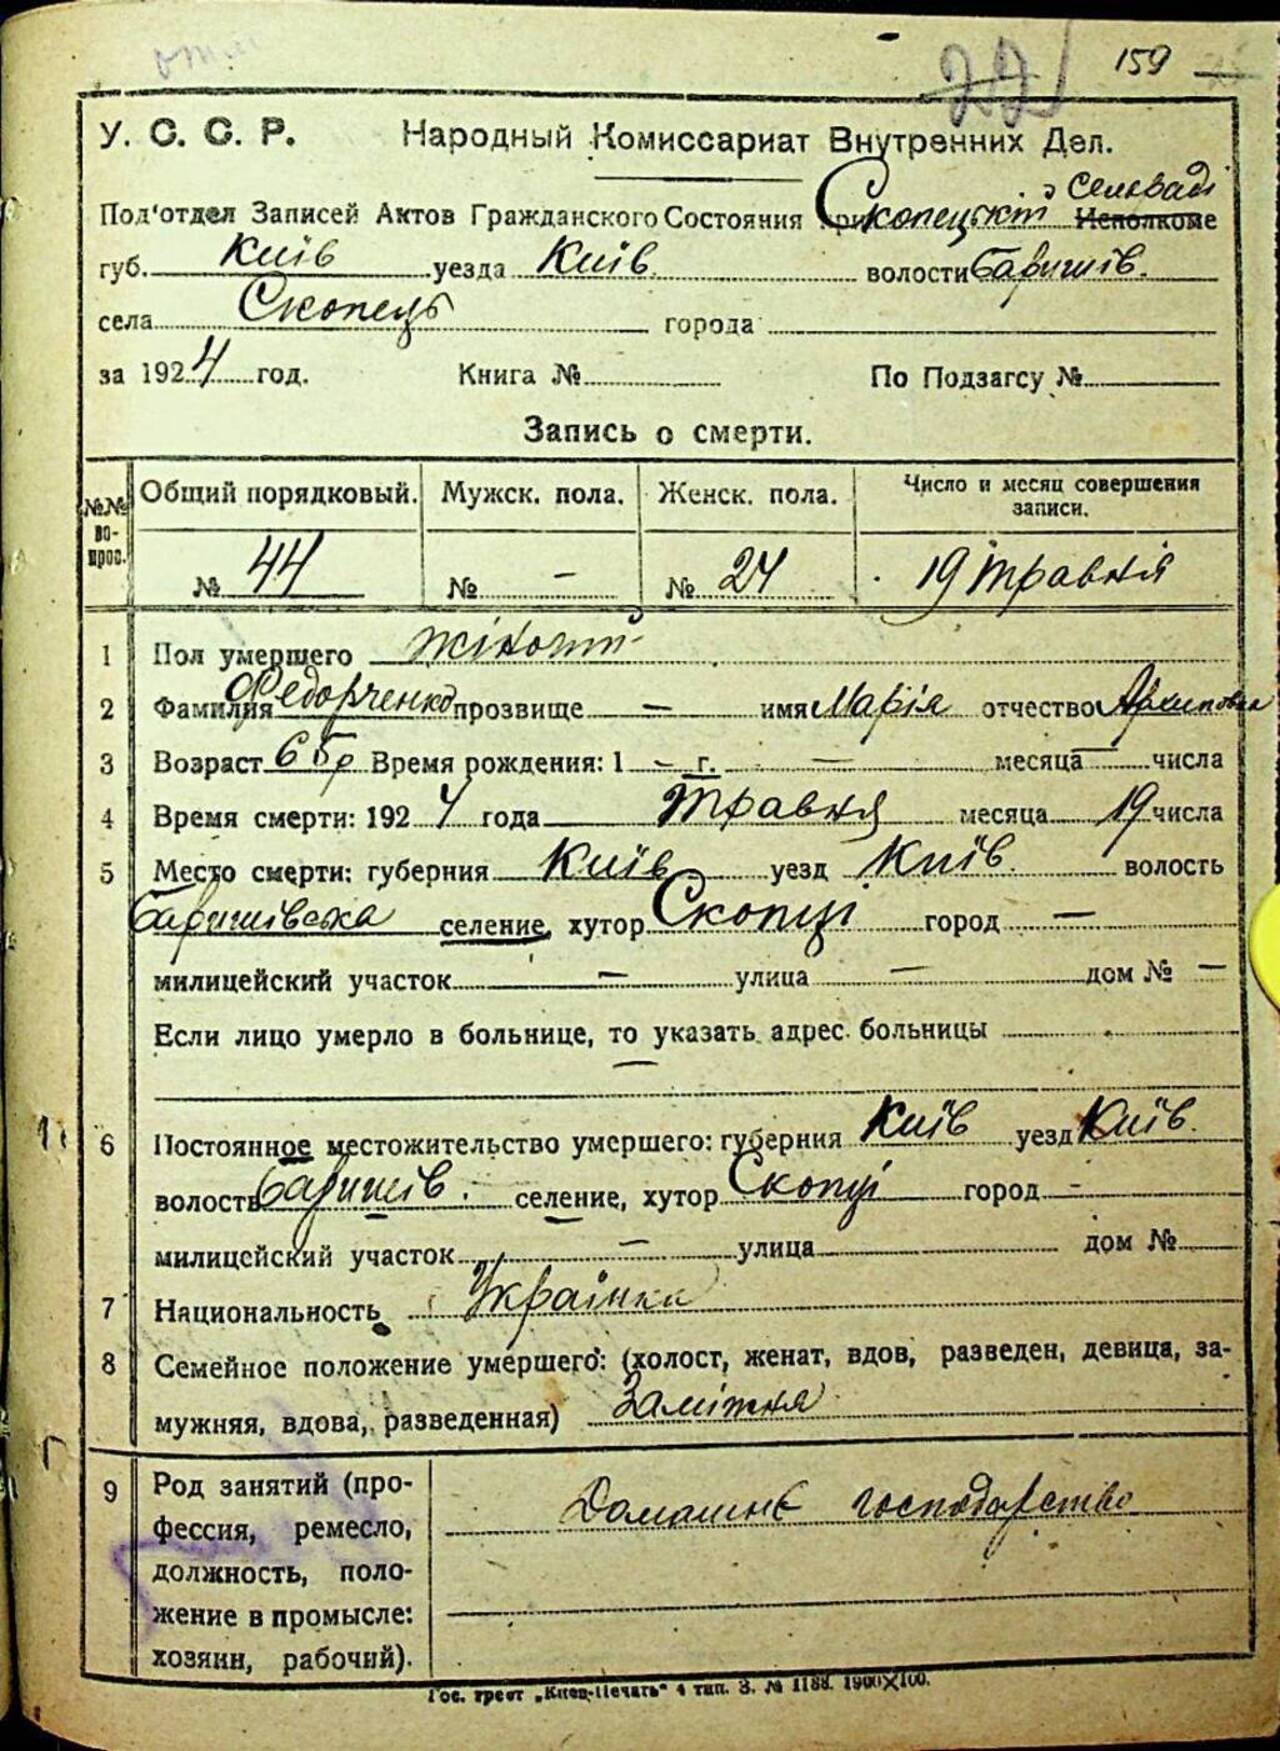 159
У. С. С. Р. Народный Комиссариат Внутренних Дел.
Под'отдел Записей Актов Гражданского Состояния при Скопецькій Сельраді Исполкоме
губ. Київ уезда Київ. волости Баришів.
села Скопець города
за 1924 год. Книга № По Подзагсу №
Запись о смерти.
№№ вопрос. Общий порядковый. Мужск. пола. Женск. пола. Число и месяц совершения записи.
№ 44 № - № 24 19 травня
1 Пол умершего жіночий
2 Фамилия Федорченко прозвище — имя Марія отчество Архиповна
3 Возраст 65 р Время рождения: 1 - г. — месяца — числа
4 Время смерти: 1924 года травня месяца 19 числа
5 Место смерти: губерния Київ уезд Київ. волость
Баришівська селение, хутор Скопці город —
милицейский участок — улица — дом № —
Если лицо умерло в больнице, то указать адрес больницы
—
6 Постоянное местожительство умершего: губерния Київ уезд Київ.
волость Баришів. селение, хутор Скопці город -
милицейский участок — улица дом №
7 Национальность Українка
8 Семейное положение умершего: (холост, женат, вдов, разведен, девица, за-
мужняя, вдова, разведенная) Заміжня
9 Род занятий (про-
фессия, ремесло,
должность, поло-
жение в промысле:
хозяин, рабочий).
Домашнє господарство
Гос. трест „Киев-Печать" 4 тип. З. № 1188. 1900×100.